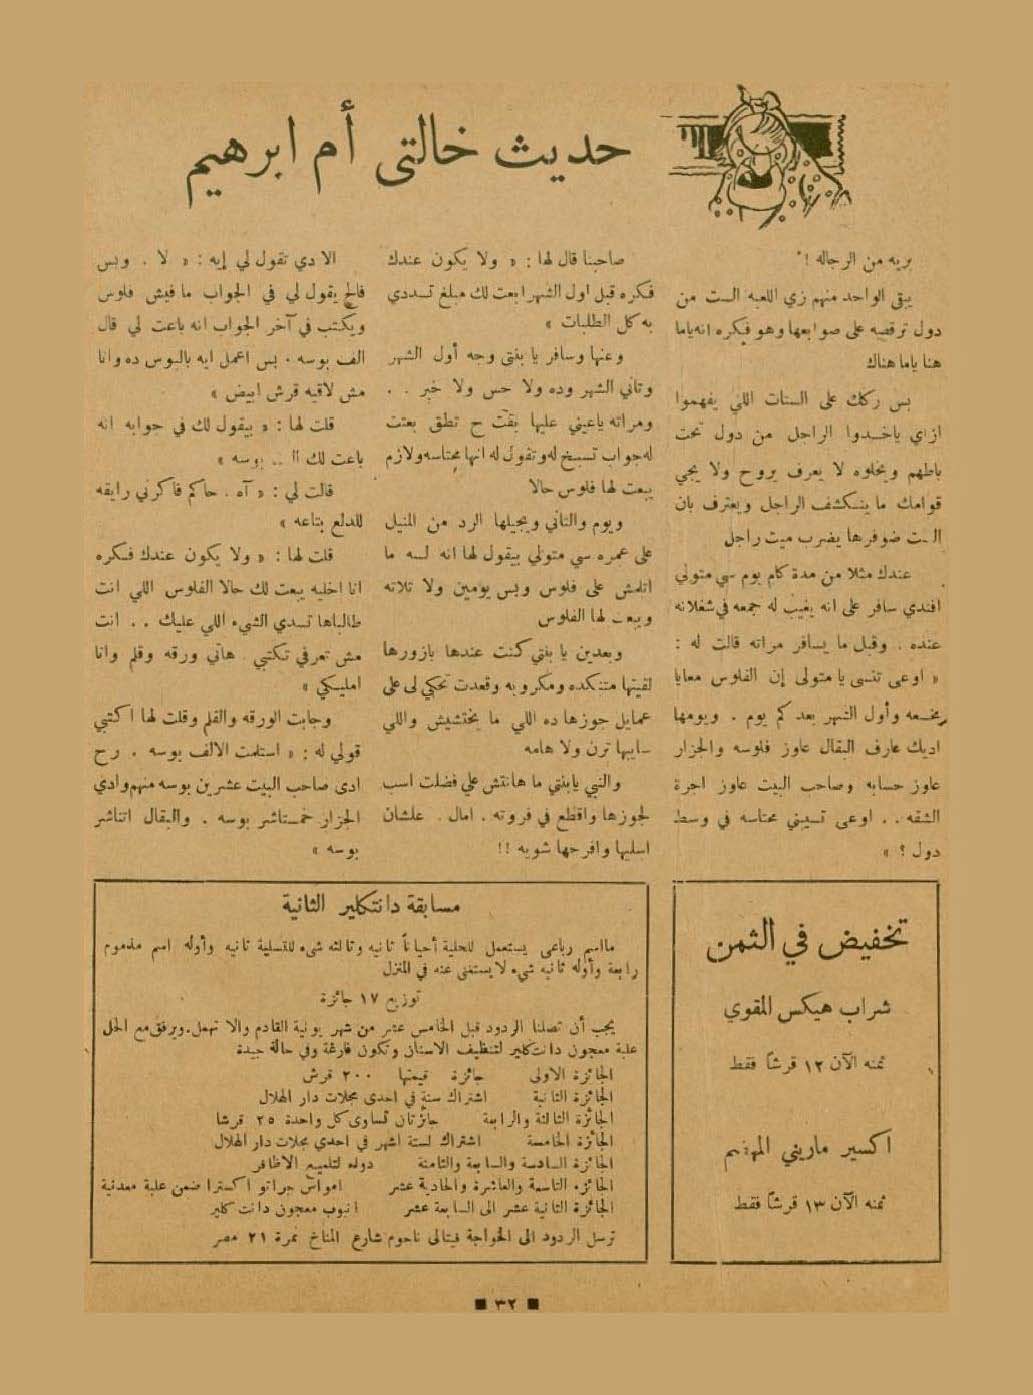 حديث خالتي أم ابرهيم
بريه من الرجاله !
يبقى الواحد منهم زي اللعبه الست من
دول ترقصه على صوابعها وهو فيكره انه ياما
هنا ياما هناك
بس ركك على الستات اللي يفهموا
ازاي ياخدوا الراجل من دول تحت
باطهم ويخلوه لا يعرف يروح ولا يجي
قوامك ما ينكشف الراجل ويعترف بان
الست ضوفرها يضرب ميت راجل
عندك مثلا من مدة كام يوم سي متولي
افندي سافر على انه يغيب له جمعه في شغلانه
عنده . وقبل ما يسافر مراته قالت له :
« اوعى تنسى يا متولى إن الفلوس معايا
وأول الشهر بعد كم يوم . ويومها
اديك عارف البقال عاوز فلوسه والجزار
عاوز حسابه وصاحب البيت عاوز اجرة
الشقه . . اوعى تسيبني محتاسه في وسط
دول ؟ »
صاحبنا قال لها : « ولا يكون عندك
فكره قبل اول الشهر ابعت لك مبلغ تسددي
به كل الطلبات »
وعنها وسافر يا بنتي وجه أول الشهر
وتاني الشهر وده ولا حس ولا خبر . .
ومراته ياعيني عليها بقت ح تطق بعتت
له جواب تسبخ له وتقول له انها محتاسه ولازم
يبعت لها فلوس حالا
ويوم والتاني ويجيلها الرد من المنيل
على عمره سي متولي بيقول لها انه لسه ما
اتلمش على فلوس وبس يومين ولا تلاته
ويبعت لها الفلوس
وبعدين يا بنتي كنت عندها بازورها
لقيتها متنكده ومكروبه وقعدت تحكي لى على
عمايل جوزها ده اللي ما يختشيش واللي
سايبها ترن ولا هامه
والنبي يا بنتي ما هانتش علي فضلت اسب
لجوزها واقطع في فروته . امال . علشان
اسليها وافرحها شويه !!
الا دي تقول لي إيه : « لا . وبس
فالح يقول لي في الجواب ما فيش فلوس
ويكتب في آخر الجواب انه باعت لي قال
الف بوسه . بس اعمل ايه بالبوس ده وانا
مش لاقيه قرش ابيض »
قلت لها : « بيقول لك في جوابه انه
باعت لك الـ .. بوسه »
قالت لي : « آه . حاكم فاكرني رايقه
للدلع بتاعه »
قلت لها : « ولا يكون عندك فكره
انا اخليه يبعت لك حالا الفلوس اللي انت
طالباها تسدي الشيء اللي عليك . . انت
مش تعرفي تكتبي . هاتي ورقه وقلم وانا
امليكي »
وجابت الورقه والقلم وقلت لها اكتبي
قولي له : « استلمت الالف بوسه . رح
ادى صاحب البيت عشرين بوسه منهم وادي
الجزار خمستاشر بوسه . والبقال اتناشر
بوسه »
تخفيض في الثمن
شراب هيكس المقوي
ثمنه الآن ١٢ قرشاً فقط
اكسير ماريني المهضم
ثمنه الآن ١٣ قرشاً فقط
مسابقة دانتكلير الثانية
ما اسم رباعى يستعمل للحلية أحياناً ثانيه وثالثه شىء للتسلية ثانيه وأوله اسم مذموم
رابعة وأوله ثانيه شيء لا يستغنى عنه في المنزل
توزيع ١٧ جائزة
يجب أن تصلنا الردود قبل الخامس عشر من شهر يونية القادم والا تهمل. ويرفق مع الحل
علبة معجون دانتكلير لتنظيف الاسنان وتكون فارغة وفي حالة جيدة
الجائزة الاولى جائزة قيمتها ٢٠٠ قرش
الجائزة الثانية اشتراك سنة في احدى مجلات دار الهلال
الجائزة الثالثة والرابعة جائزتان تساوى كل واحدة ٢٥ قرشا
الجائزة الخامسة اشتراك لستة اشهر في احدي مجلات دار الهلال
الجائزة السادسة والسابعة والثامنة دوله لتلميع الاظافر
الجائزه التاسعة والعاشرة والحادية عشر امواس جراتو اكسترا ضمن علبة معدنية
الجائزة الثانية عشر الى السابعة عشر انبوب معجون دانت كلير
ترسل الردود الى الخواجة فيتالى ناحوم شارع المناخ نمرة ٢١ مصر
٣٢